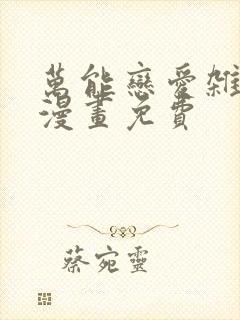 萬能戀愛雜
漫畫免費
蔡宛靈